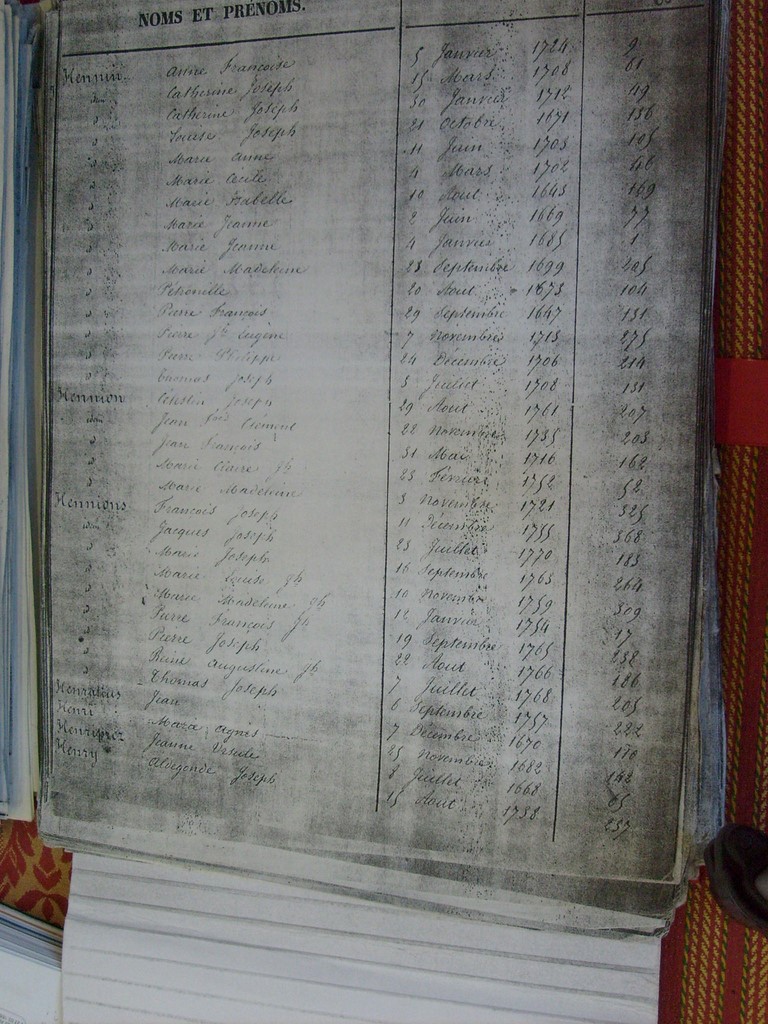 NOMS ET PRÉNOMS.
Hennin Anne Françoise 5 Janvier 1724 9
idem Catherine Joseph 15 Mars 1708 61
" Catherine Joseph 30 Janvier 1712 49
" Louise Joseph 21 Octobre 1671 136
" Marie Anne 11 Juin 1703 105
" Marie Cecile 4 Mars 1702 46
" Marie Isabelle 10 Aout 1643 169
" Marie Jeanne 2 Juin 1669 77
" Marie Jeanne 4 Janvier 1685 1
" Marie Madeleine 23 Septembre 1699 205
" Petronille 20 Aout 1673 104
" Pierre François 29 Septembre 1647 131
" Pierre Jh Eugène 7 Novembre 1713 275
" Pierre Philippe 24 Décembre 1706 214
" Thomas Joseph 3 Juillet 1708 131
Hennion Célestin Joseph 29 Aout 1761 207
idem Jean Clément 22 Novembre 1735 203
" Jean François 31 Mai 1716 162
" Marie Claire Jh 23 Février 1752 52
" Marie Madeleine 3 Novembre 1721 325
Hennions François Joseph 11 Décembre 1755 368
idem Jacques Joseph 23 Juillet 1770 183
" Marie Joseph 16 Septembre 1763 264
" Marie Louise Jh 10 Novembre 1759 309
" Marie Madeleine Jh 12 Janvier 1754 17
" Pierre François Jh 19 Septembre 1765 238
" Pierre Joseph 22 Aout 1766 186
" Reine Augustine Jh 7 Juillet 1768 205
" Thomas Joseph 6 Septembre 1757 222
Jean 7 Décembre 1670 170
Henri Marie Agnès 25 Novembre 1682 142
Henriprez Jeanne Ursule 3 Juillet 1668 65
Henry Aldegonde Joseph 15 Aout 1738 257